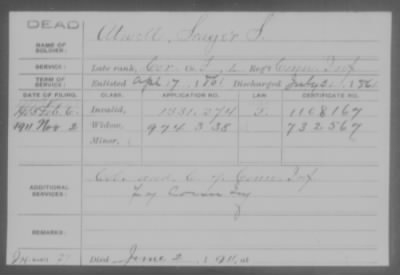 DEAD
NAME OF SOLDIER: Atwell, Seager S.
SERVICE: Late rank, Cor Co. F, 1, Reg't Conn Inf
TERM OF SERVICE: Enlisted Apl 17, 1861 Discharged July 31, 1861
DATE OF FILING. CLASS. APPLICATION NO. LAW CERTIFICATE NO.
Feb 6 Invalid, 1331.274 1108167
1911 Nov 2 Widow, 974.338 732.567
Minor,
ADDITIONAL SERVICES: Col. and C 7 Conn Inf
REMARKS:
Died June 2, 1911, at